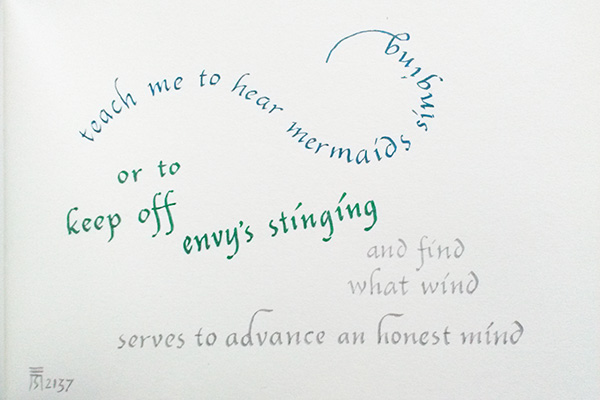 teach me to hear mermaids singing
or to
keep off
envy's stinging
and find
what wind
serves to advance an honest mind
2137